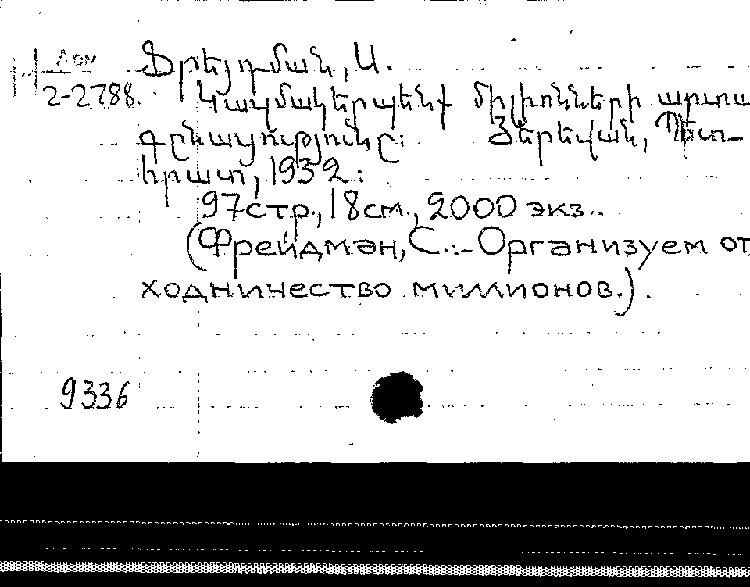 Дом Ֆրեյդման, Ս.
2-2788. Կազմակերպենք միլիոնների արտա
գընացությունը: Յերեվան, Պետ-
հրատ, 1932:
97стр., 18см., 2000 экз..
(Фрейдман, С.:- Организуем от
ходничество миллионов.).
9336